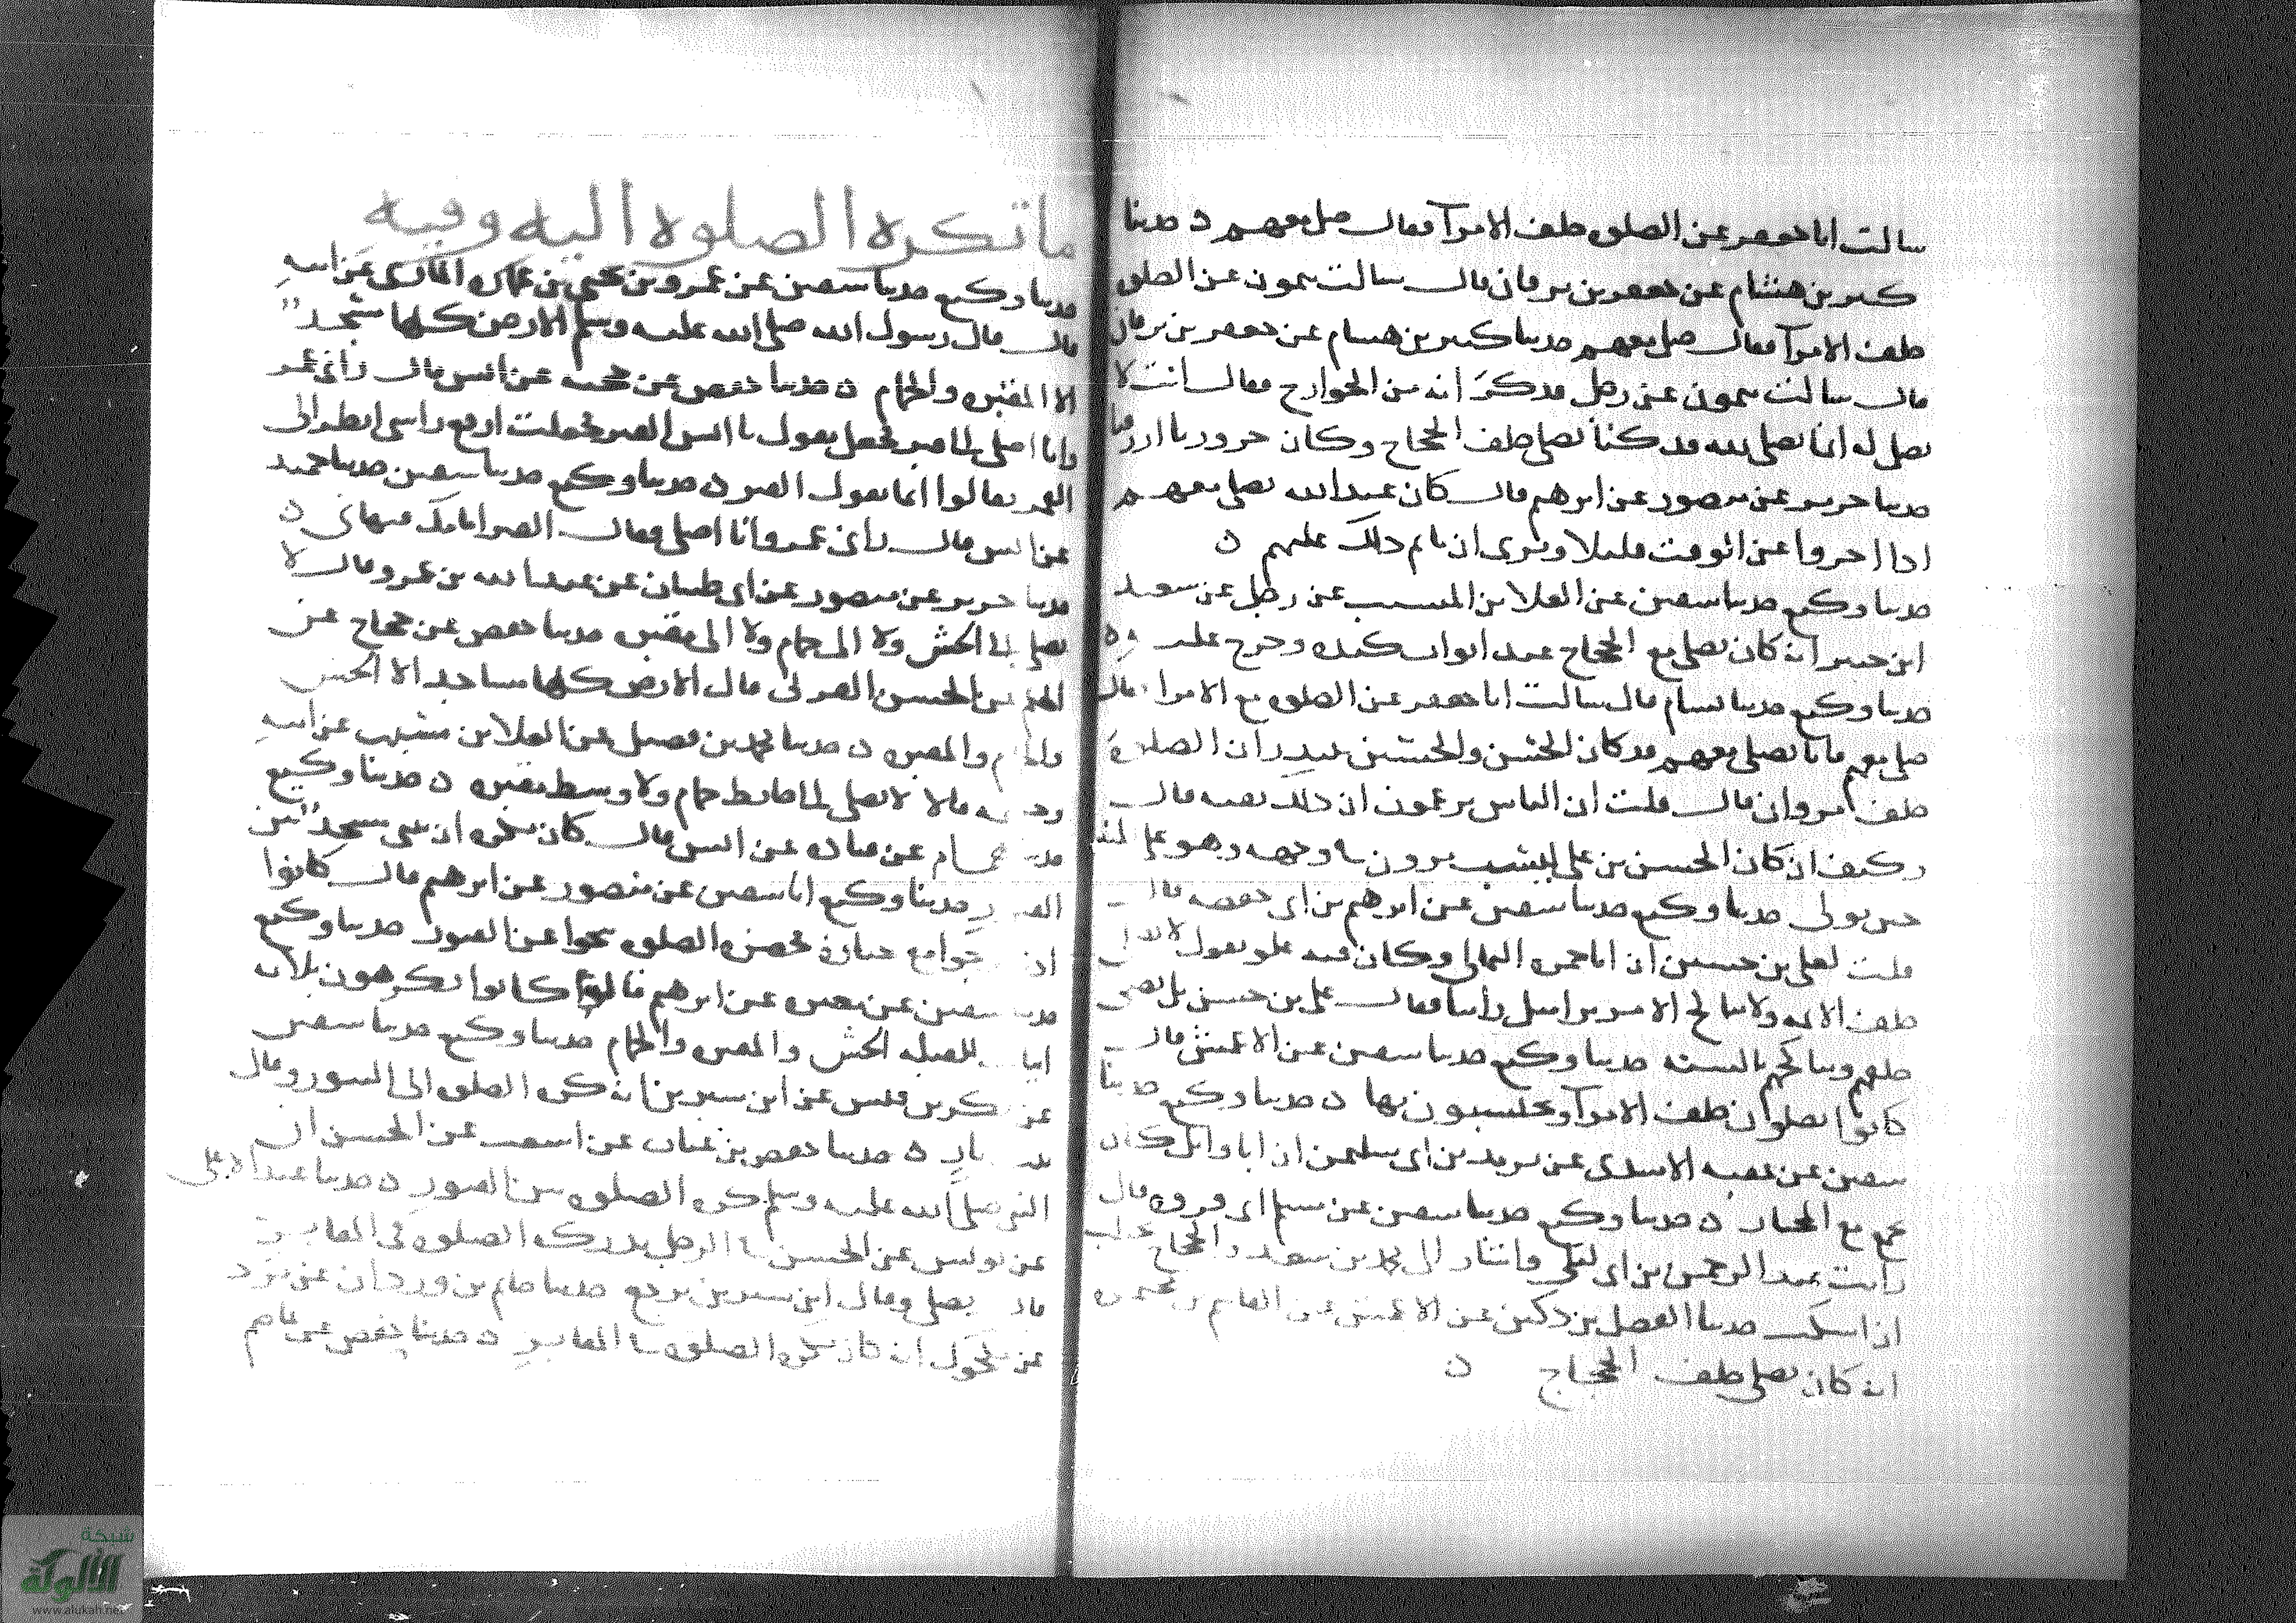 سالت ابا جعفر عن الصلوة خلف الامرآ فقال صل معهم ه حدثنا
كثير بن هشام عن جعفر بن برقان قال سالت ميمون عن الصلوة
خلف الامرآ فقال صل معهم حدثنا كثير بن هشام عن جعفر بن برقان
قال سالت ميمون عن رجل فذكر انه من الخوارج فقال انت لا
تصلي له انما تصلي لله قد كنا نصلي خلف الحجاج وكان حروريا ازرقيا
حدثنا جرير عن منصور عن ابرهيم قال كان عبد الله يصلي معهم
اذا اخروا عن الوقت قليلا ويرى ان ماثم ذلك عليهم ه
حدثنا وكيع حدثنا سفين عن العلا بن المسيب عن رجل عن سعيد
ابن جبير انه كان يصلي مع الحجاج عند ابواب كنده وخرج عليه ه
حدثنا وكيع حدثنا بسام قال سالت ابا جعفر عن الصلوة مع الامرا قال
صل معهم فانا نصلي معهم قد كان الحسن والحسين يبتدران الصلاة
خلف مروان قال قلت ان الناس يزعمون ان ذلك تقيه قال
وكيف ان كان الحسن بن علي ليسب مروان في وجهه وهو على المنبر
حين تولى حدثنا وكيع حدثنا سفين عن ابرهيم بن ابي حفصه قال
قلت لعلي بن حسين ان ابا حمزه الثمالي وكان فيه غلو يقول لا نصلي
خلف الائمه ولا نناكح الا من يرا مثل راينا فقال علي بن حسين بل نصلي
خلفهم ونناكحهم بالسنه حدثنا وكيع حدثنا سفين عن الاعمش قال
كانوا يصلون خلف الامرآ ويحتسبون بها ه حدثنا وكيع حدثنا
سفين عن عقبه الاسدي عن يزيد بن ابي سليمن ان ابا وائل كان
يجمع مع المختار ه حدثنا وكيع حدثنا سفين عن مسلم ابي فروه قال
رايت عبد الرحمن بن ابي ليلى واشار الى محمد بن سعد والحجاج يخطب
ان اسكت حدثنا الفضل بن دكين عن الاعمش عن القاسم بن مخيمره
انه كان يصلي خلف الحجاج ه
ما تكره الصلوة اليه وفيه
حدثنا وكيع حدثنا سفين عن عمرو بن يحيى بن عماره المازني عن ابيه
قال قال رسول الله صلى الله عليه وسلم الارض كلها مسجد
الا المقبره والحمام ه حدثنا حفص عن حميد عن انس قال راني عمر
وانا اصلي الى قبر فجعل يقول يا انس القبر فجعلت ارفع راسي انظر الى
القمر فقالوا انما يقول القبر ه حدثنا وكيع حدثنا سفين حدثنا حميد
عن انس قال راني عمر وانا اصلي فقال القبر امامك فنهاني ه
حدثنا جرير عن منصور عن ابي ظبيان عن عبد الله بن عمرو قال لا
تصلي الى الحش ولا الى حمام ولا الى مقبره حدثنا حفص عن حجاج عن
الحسن العرني قال الارض كلها مساجد الا الحش
والحمام والمقبره ه حدثنا محمد بن فضيل عن العلا بن مسيب عن ابيه
قالا لا تصلي الى حايط حمام ولا وسط مقبره ه حدثنا وكيع
حدثنا همام عن قتاده عن انس قال كان يكره ان يبنى مسجد بين
القبور حدثنا وكيع انا سفين عن منصور عن ابرهيم قال كانوا
اذا خرجوا مع جنازة فحضره الصلوة تنحوا عن القبور حدثنا وكيع
حدثنا سفين عن مغيره عن ابرهيم قال كانوا يكرهون ثلاث
ابيات للقبله الحش والمقبره والحمام حدثنا وكيع حدثنا سفين
عن بكر بن قيس عن ابن سيرين انه كره الصلوة الى التنور وقال
بيت نار ه حدثنا حفص بن غياث عن اشعث عن الحسن ان
النبي صلى الله عليه وسلم كره الصلوة بين القبور ه حدثنا عبد الاعلى
عن يونس عن الحسن في الرجل يدركه الصلوة في المقابر
قال يصلي وقال ابن سيرين يرجع حدثنا حاتم بن وردان عن برد
عن مكحول انه كان يكره الصلوة في المقابر ه حدثنا حفص عن عاصم
شبكة
الألوكة
www.alukah.net